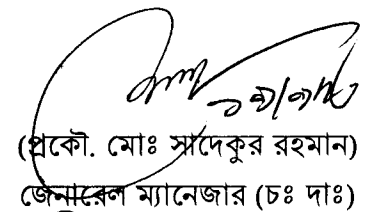 (প্রকৌ. মোঃ সাদেকুর রহমান)
জেনারেল ম্যানেজার (চঃ দাঃ)